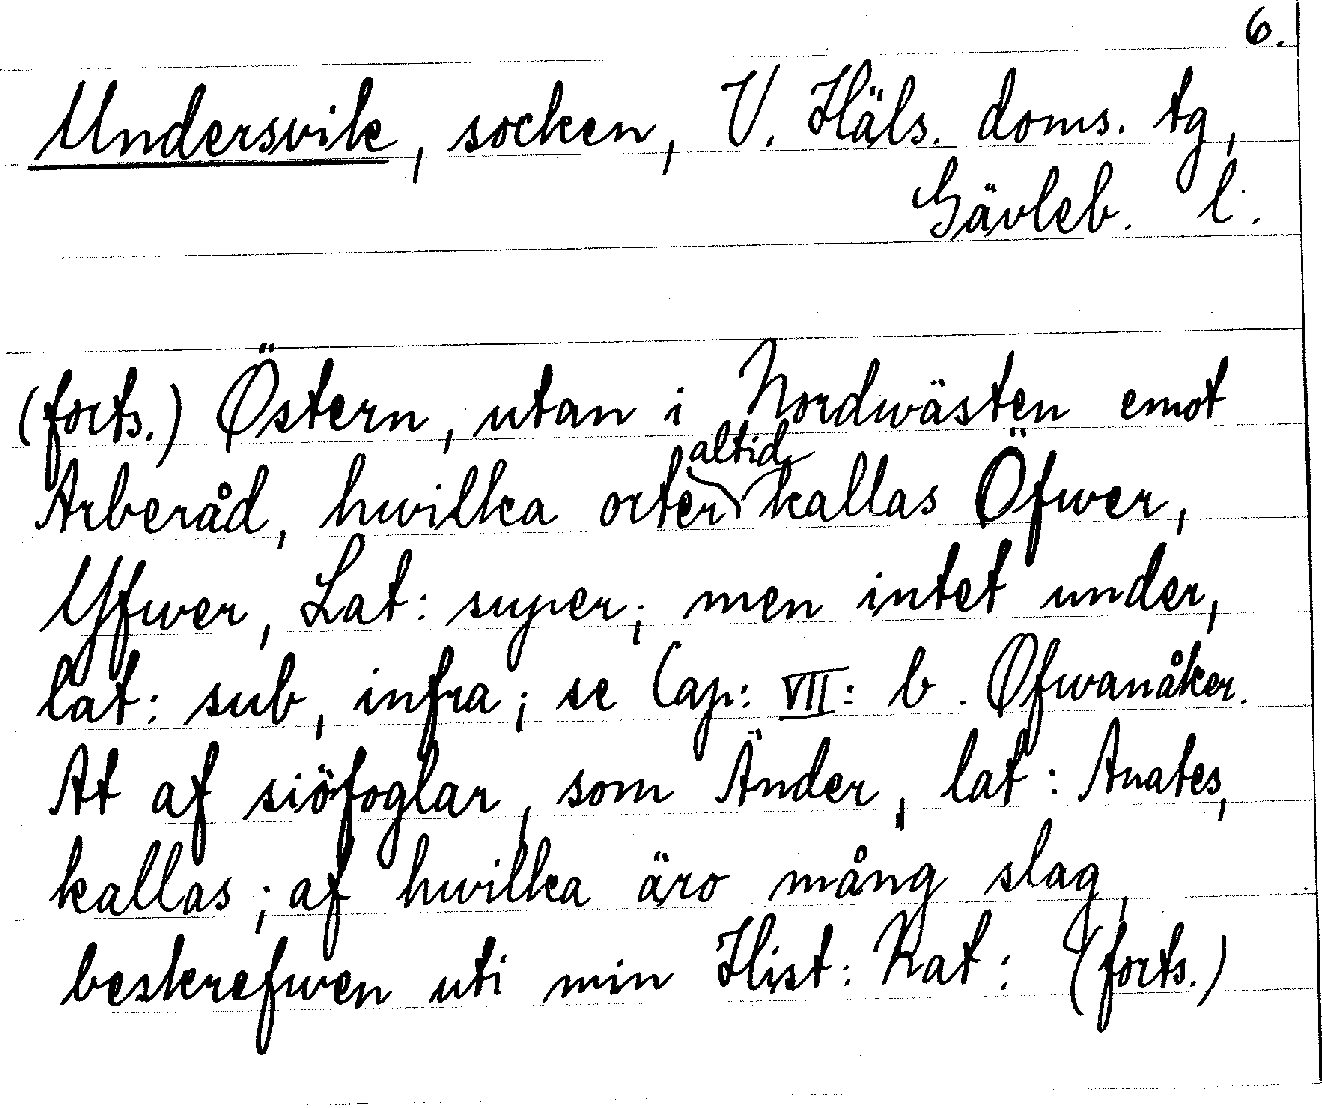 6.
Undersvik, socken, V. Häls. doms. tg,
Gävleb. l.
(forts.) Östern, utan i Nordwästen emot
Arberåd, hwilka orter altid kallas Öfwer,
Yfwer, Lat: super; men intet under,
lat: sub, infra; se Cap: VII: b. Ofwanåker.
At af siöfoglar, som Änder, lat: Anates,
kallas; af hwilka äro mång slag,
beskrefwen uti min Hist: Nat: (forts.)